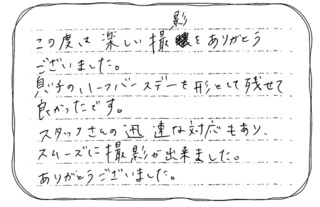 この度は楽しい撮影をありがとう
ございました。
息子のハーフバースデーを形として残せて
良かったです。
スタッフさんの迅速な対応もあり、
スムーズに撮影が出来ました。
ありがとうございました。